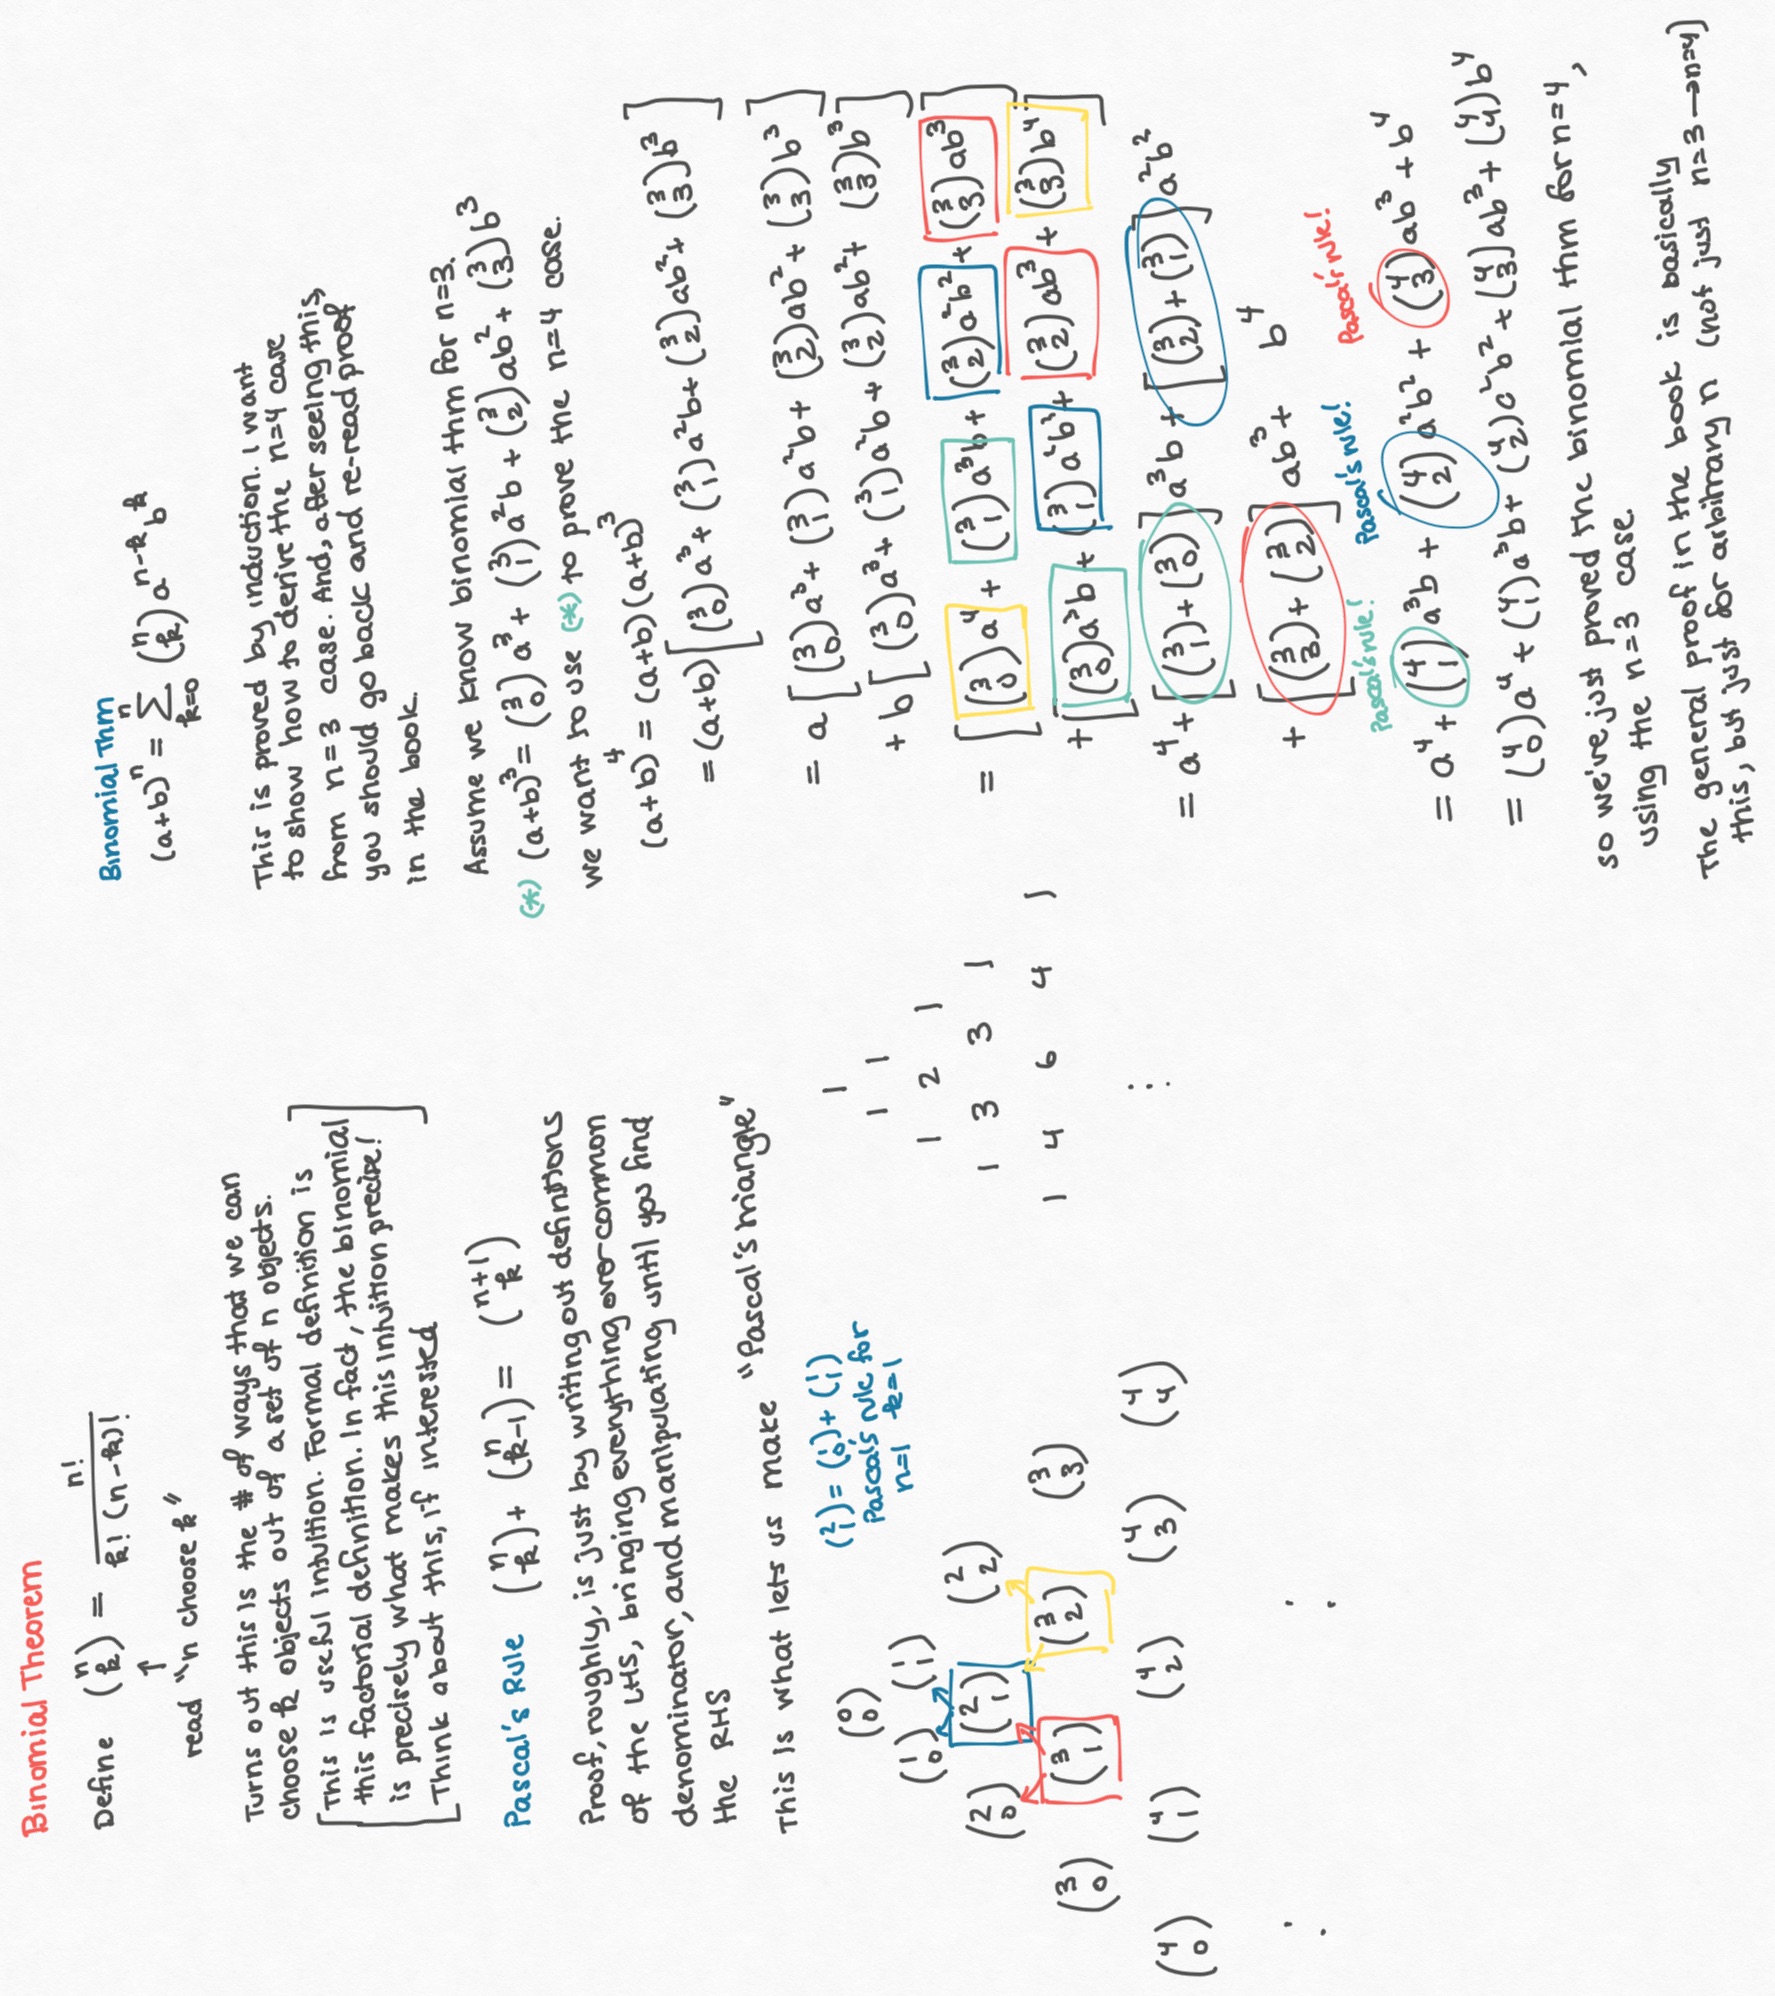 Binomial Theorem
Define (n k) = n! / k! (n-k)!
↑
read "n choose k"
Turns out this is the # of ways that we can
choose k objects out of a set of n objects.
[This is useful intuition. Formal definition is
this factorial definition. In fact, the binomial
is precisely what makes this intuition precise!
Think about this, if interested]
Pascal's Rule (n k) + (n k-1) = (n+1 k)
Proof, roughly, is just by writing out definitions
of the LHS, bringing everything over common
denominator, and manipulating until you find
the RHS
This is what lets us make "Pascal's triangle"
(2 1) = (1 0) + (1 1)
Pascal's rule for
n=1 k=1
(0 0)
(1 0) (1 1)
(2 0) (2 1) (2 2)
(3 0) (3 1) (3 2) (3 3)
(4 0) (4 1) (4 2) (4 3) (4 4)
⋮ ⋮
1
1 1
1 2 1
1 3 3 1
1 4 6 4 1
⋮
Binomial Thm
(a+b)^n = Σ_{k=0}^{n} (n k) a^{n-k} b^k
This is proved by induction. I want
to show how to derive the n=4 case
from n=3 case. And, after seeing this,
you should go back and re-read proof
in the book.
Assume we know binomial thm for n=3.
(*) (a+b)^3 = (3 0) a^3 + (3 1) a^2b + (3 2) ab^2 + (3 3) b^3
we want to use (*) to prove the n=4 case.
(a+b)^4 = (a+b)(a+b)^3
= (a+b) [(3 0) a^3 + (3 1) a^2b + (3 2) ab^2 + (3 3) b^3]
= a [(3 0) a^3 + (3 1) a^2b + (3 2) ab^2 + (3 3) b^3]
+ b [(3 0) a^3 + (3 1) a^2b + (3 2) ab^2 + (3 3) b^3]
= [(3 0) a^4 + (3 1) a^3b + (3 2) a^2b^2 + (3 3) ab^3]
+ [(3 0) a^3b + (3 1) a^2b^2 + (3 2) ab^3 + (3 3) b^4]
= a^4 + [(3 1) + (3 0)] a^3b + [(3 2) + (3 1)] a^2b^2
+ [(3 3) + (3 2)] ab^3 + b^4
Pascal's rule! Pascal's rule! Pascal's rule!
= a^4 + (4 1) a^3b + (4 2) a^2b^2 + (4 3) ab^3 + b^4
= (4 0) a^4 + (4 1) a^3b + (4 2) a^2b^2 + (4 3) ab^3 + (4 4) b^4
so we've just proved the binomial thm for n=4,
using the n=3 case.
The general proof in the book is basically
this, but just for arbitrary n (not just n=3→n=4)